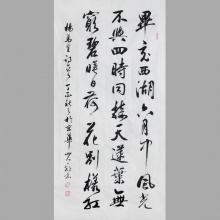 畢竟西湖六月中風光
不與四時同接天蓮葉無
窮碧映日荷花別樣紅
楊萬里詩